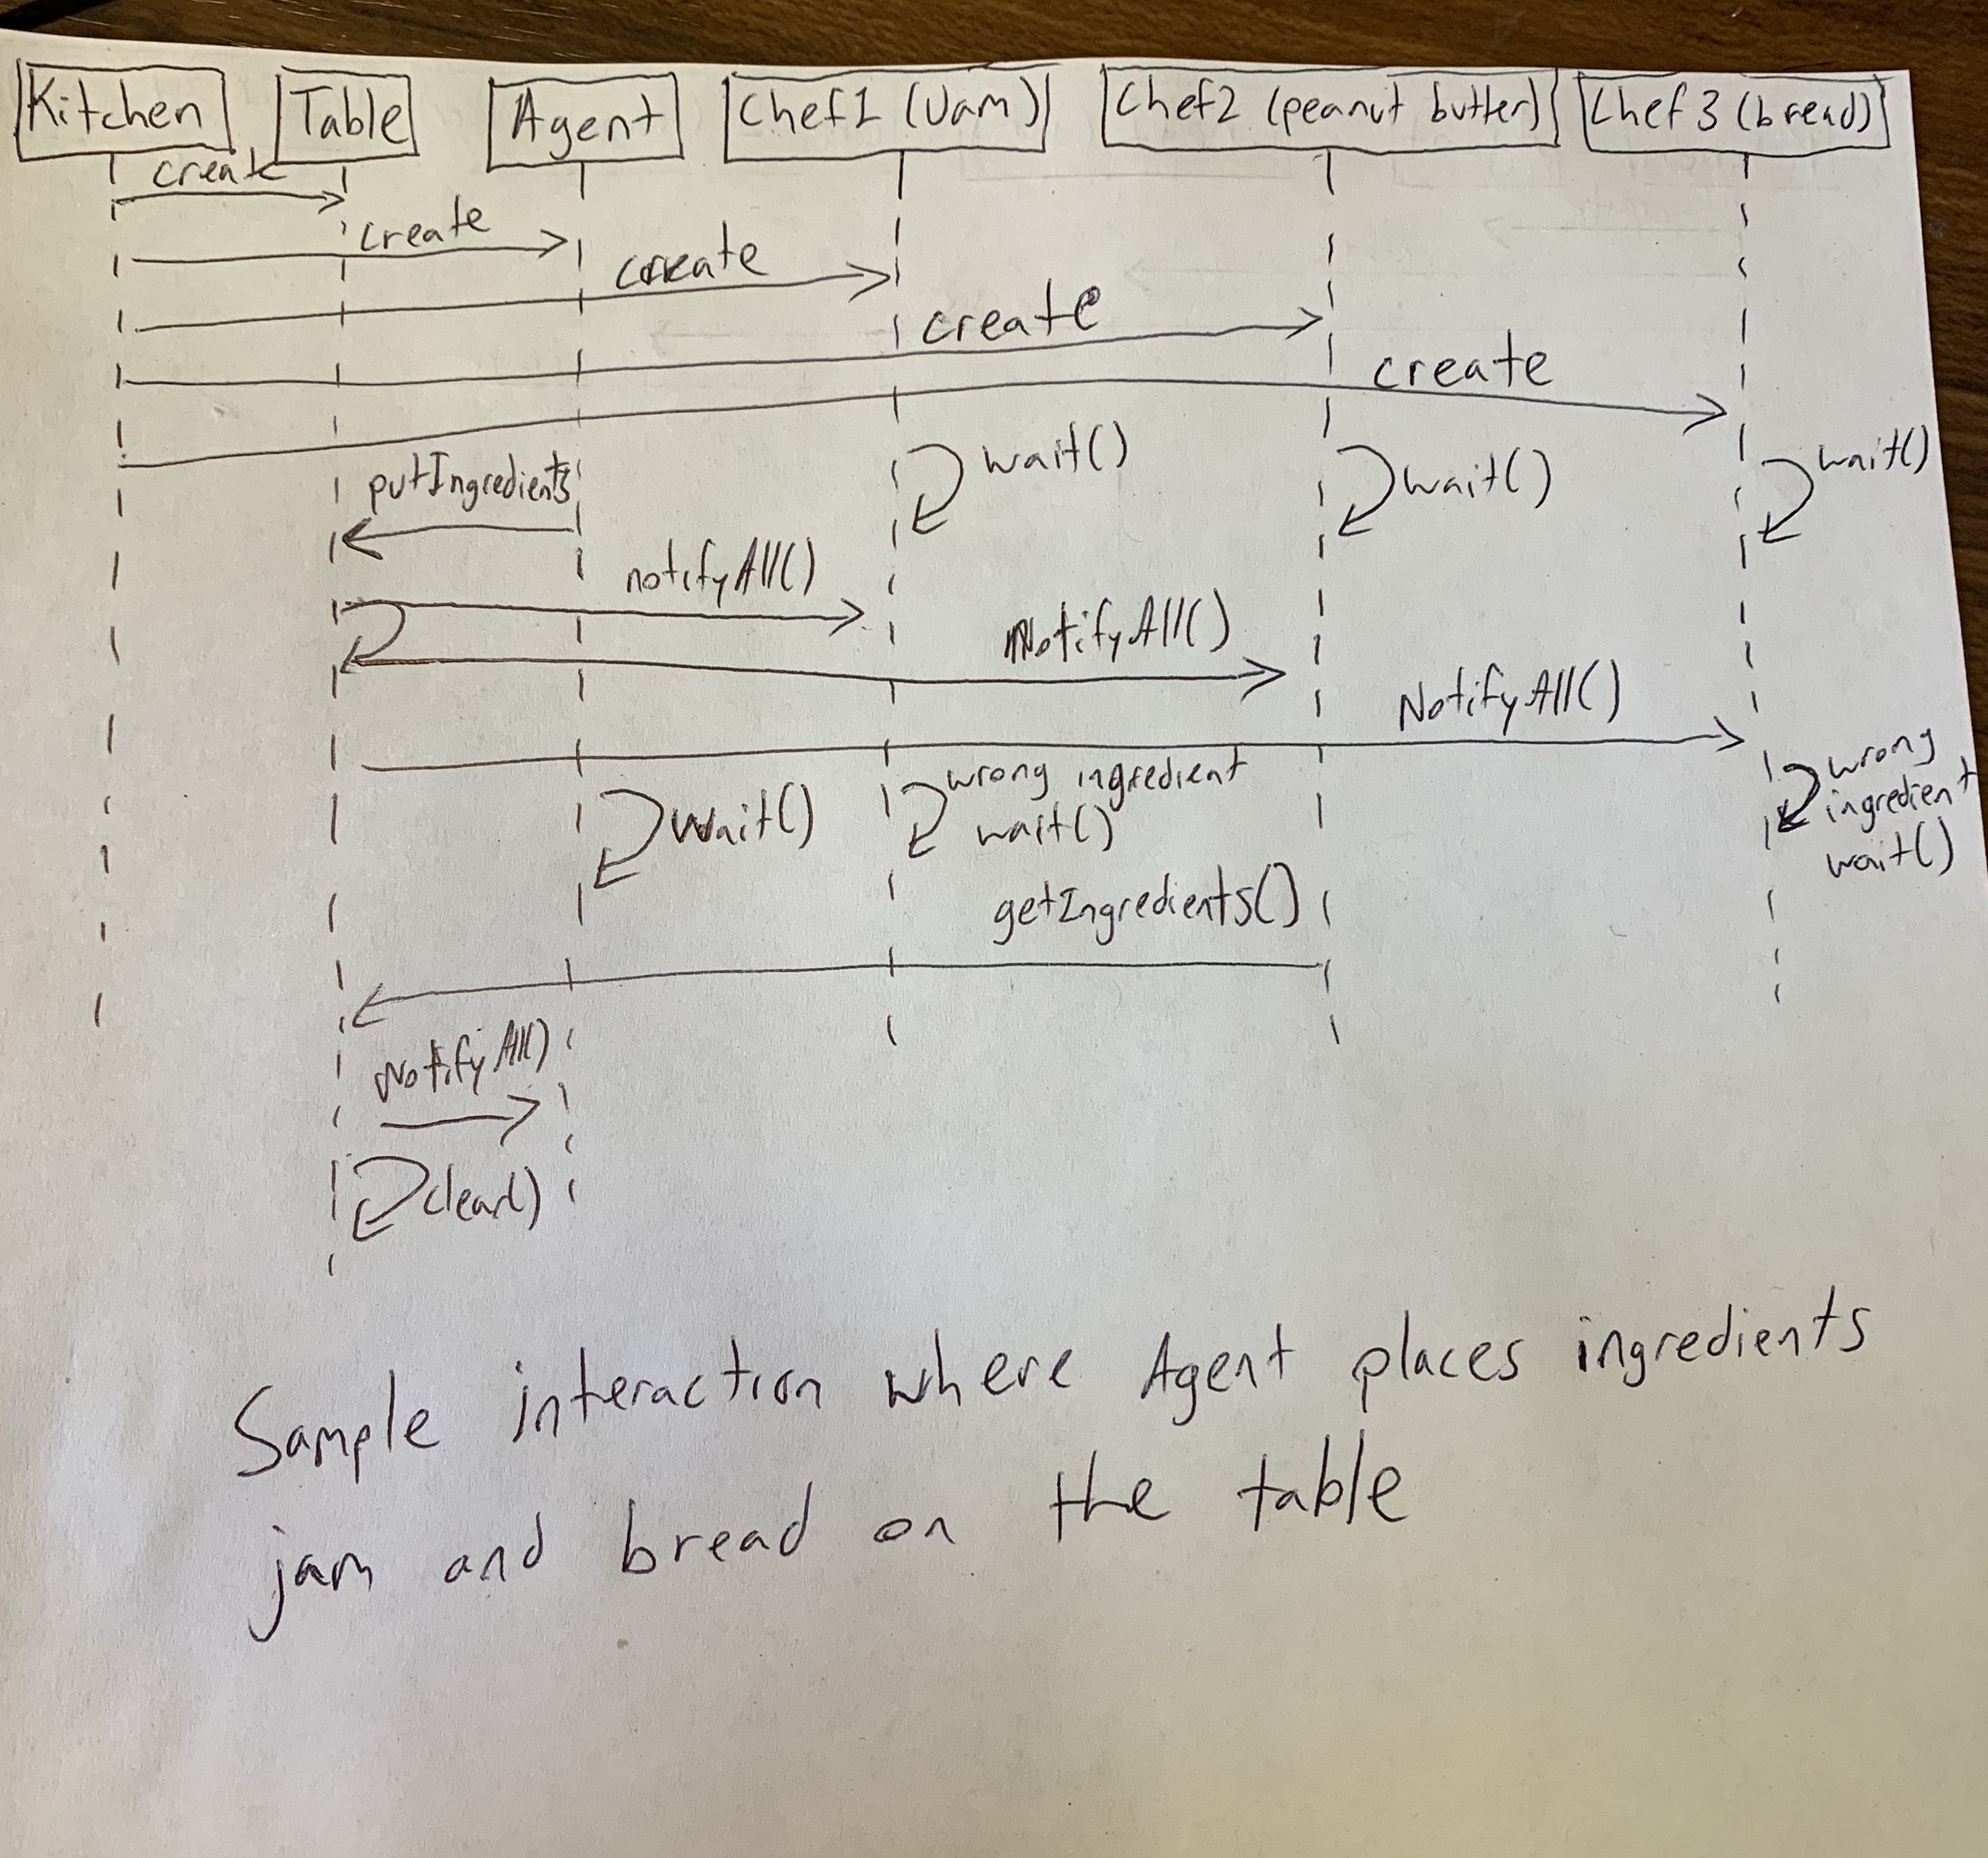 Kitchen Table Agent Chef1 (Jam) Chef2 (peanut butter) Chef 3 (bread)
create
create
create
create
create
wait()
wait()
wait()
putIngredients
notifyAll()
NotifyAll()
NotifyAll()
wait()
wrong ingredient
wait()
wrong
ingredient
wait()
getIngredients()
NotifyAll()
clear()
Sample interaction where Agent places ingredients
jam and bread on the table